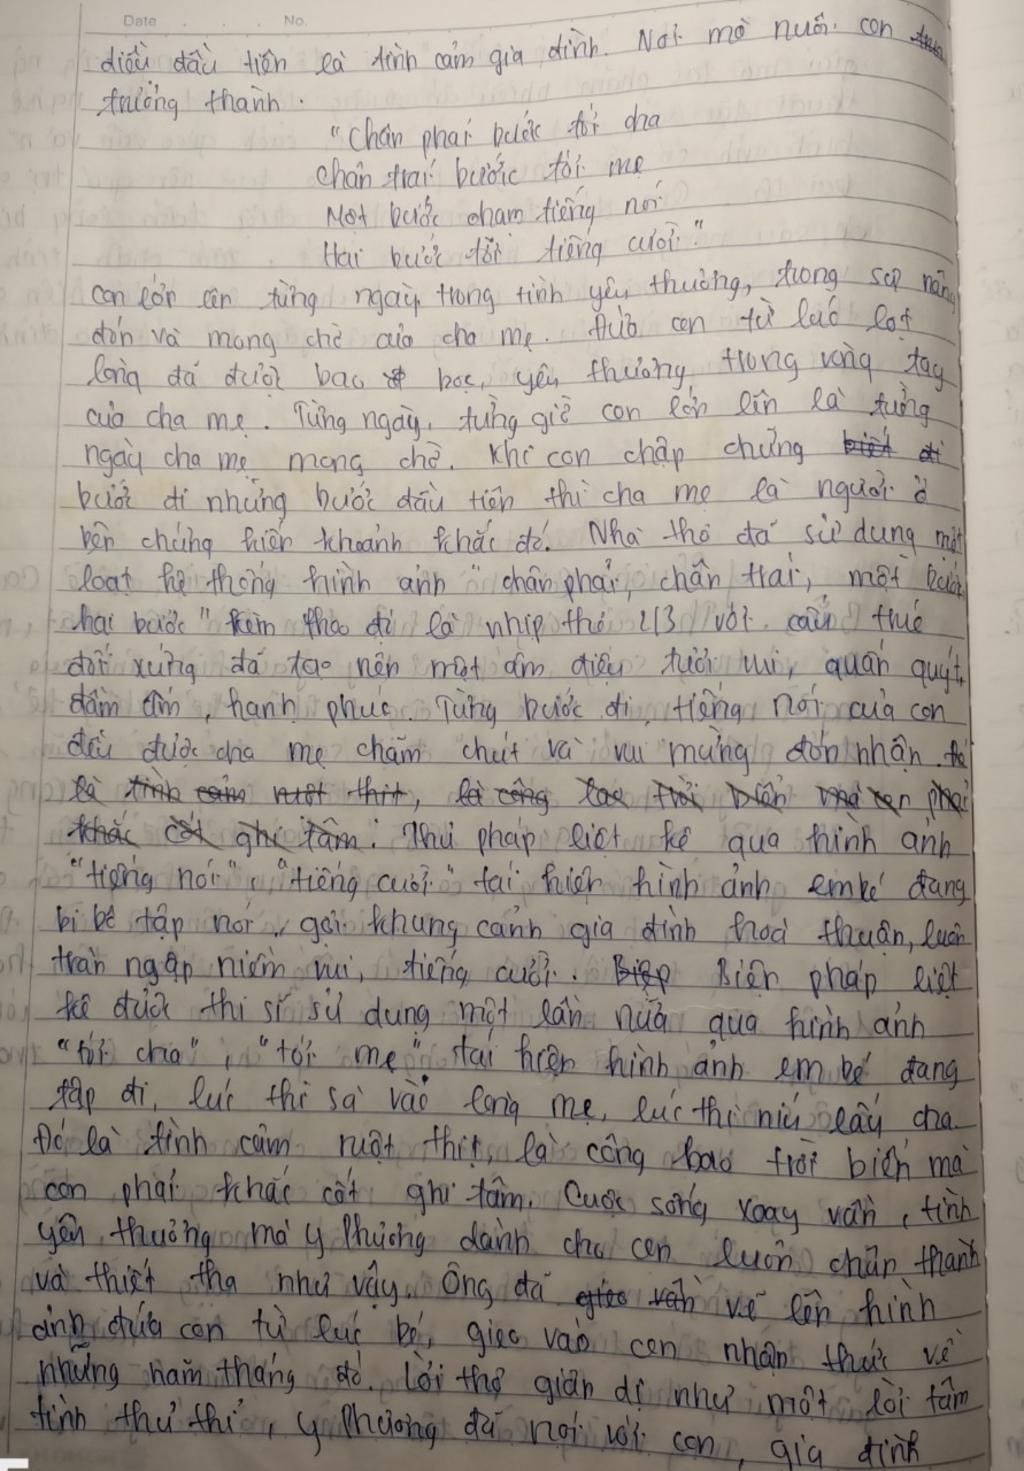 Date No.
điều đầu tiên là tình cảm gia đình. Nơi mở nuôi con
trưởng thành.
"Chân phải bước tới cha
Chân trái bước tới mẹ
Một bước chạm tiếng nói
Hai bước tới tiếng cười."
con lớn lên từng ngày trong tình yêu thương, trong sự nâng
đón và mong chờ của cha mẹ. Đứa con từ lúc lọt
lòng đã được bao bọc, yêu thương trong vòng tay
của cha mẹ. Từng ngày, từng giờ con lớn lên là từng
ngày cha mẹ mong chờ. Khi con chập chững biết đi
bước đi những bước đầu tiên thì cha mẹ là người ở
bên chứng kiến khoảnh khắc đó. Nhà thơ đã sử dụng một
loạt hệ thống hình ảnh "chân phải, chân trái, một bước
hai bước" kèm theo đó là nhịp thơ 2/3 với cấu trúc
đối xứng đã tạo nên một âm điệu tươi vui, quấn quýt,
đầm ấm, hạnh phúc. Từng bước đi, tiếng nói của con
đều được cha mẹ chăm chút và vui mừng đón nhận.
là tình cảm ruột thịt, là công lao trời biển mà con phải
khắc cốt ghi tâm. Thủ pháp liệt kê qua hình ảnh
"tiếng nói", "tiếng cười" tái hiện hình ảnh em bé đang
bi bê tập nói, gợi khung cảnh gia đình hoà thuận, luôn
tràn ngập niềm vui, tiếng cười. Biệp Biện pháp liệt
kê được thi sĩ sử dụng một lần nữa qua hình ảnh
"tới cha", "tới mẹ" tái hiện hình ảnh em bé đang
tập đi, lúc thì sà vào lòng mẹ, lúc thì níu lấy cha.
Đó là tình cảm ruột thịt, là công lao trời biển mà
con phải khắc cốt ghi tâm. Cuộc sống xoay vần, tình
yêu thương mà Y Phương dành cho con luôn chân thành
và thiết tha như vậy. Ông đã vẽ lên hình
ảnh đứa con từ lúc bé, gieo vào con nhận thức về
những năm tháng đó. Lời thơ giản dị như một lời tâm
tình thủ thỉ, Y Phương đã nói với con, gia đình